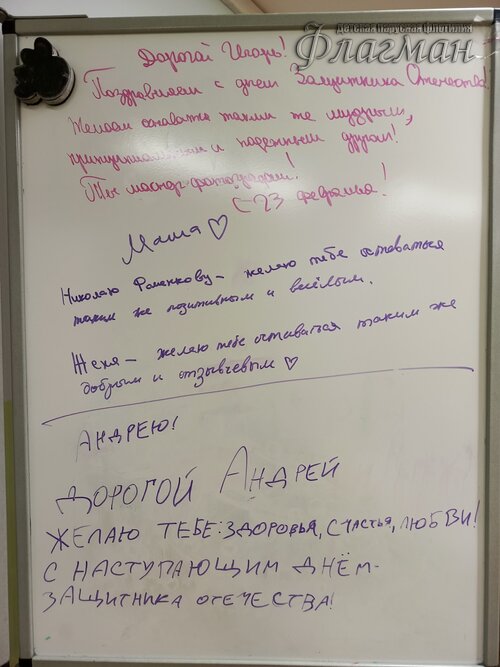 Детская парусная флотилия
Флагман
Дорогой Игорь!
Поздравляем с днем Защитника Отечества
Желаем оставаться таким же мудрым,
принципиальным и надежным другом!
Ты мастер фотографии!
С 23 февраля!
Маша♡
Николаю Фоменкову - желаю тебе оставаться
таким же позитивным и весёлым.
Женя - желаю тебе оставаться таким же
добрым и отзывчевым ♡
АНДРЕЮ!
ДОРОГОЙ АНДРЕЙ
ЖЕЛАЮ ТЕБЕ: ЗДОРОВЬЯ, СЧАСТЬЯ, ЛЮБВИ!
С НАСТУПАЮЩИМ ДНЁМ-
ЗАЩИТНИКА ОТЕЧЕСТВА!